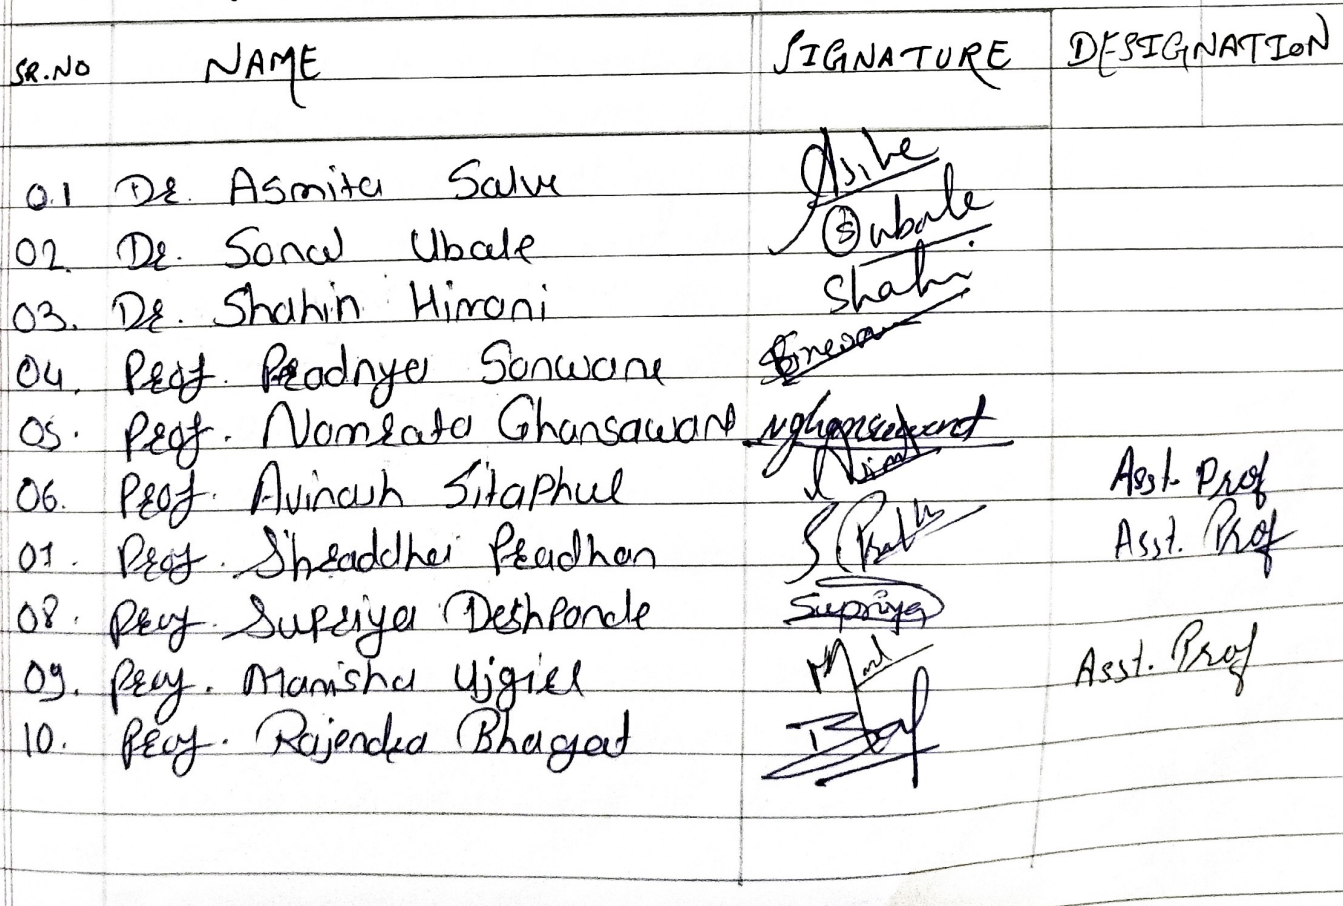 SR.NO NAME SIGNATURE DESIGNATION
01 Dr. Asmita Salve
02. Dr. Sonal Ubale Subale
03. Dr. Shahin Hirani Shahi
04. Prof. Pradnya Sonwane
05. Prof. Namrata Ghansawant nghansawant
06. Prof. Avinash Sitaphul Asst. Prof
07. Prof. Shraddha Pradhan Asst. Prof
08. Prof. Supriya Deshpande Supriya
09. Prof. Manisha Ujgire Asst. Prof
10. Prof. Rajendra Bhagat